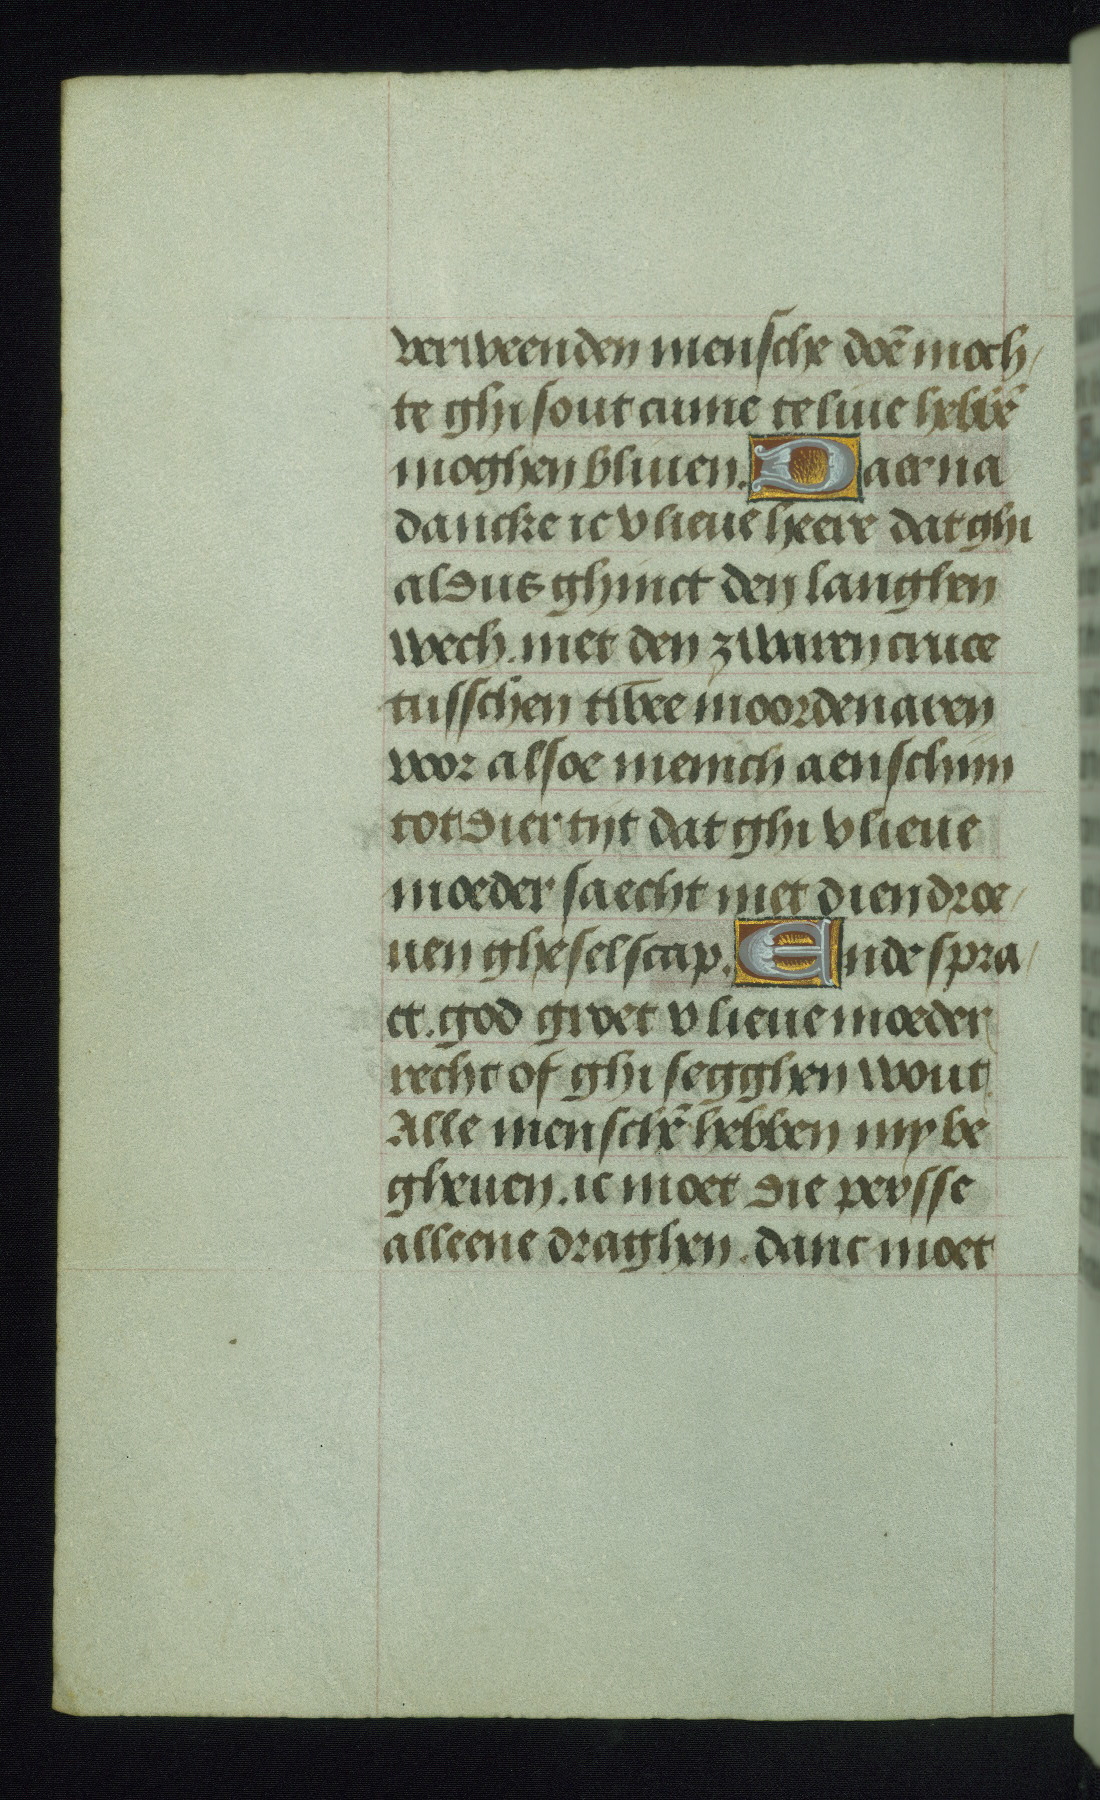 verweenden mensche doē moch/
te ghi sout cume te liue hebbē
moghen bliuen. Daer na
dancke ic v lieue heere dat ghi
aldus ghinct den langhen
wech. met den zwaren cruce
tusschen twee moordenaren
voor alsoe menich aenschijn
tot dier tijt dat ghi v lieue
moeder saecht met dien droe/
uen gheselscap. Ende spra/
ct. god groet v lieue moeder
recht of ghi segghen wout
Alle menschē hebben my be
gheuen. ic moet die persse
alleene draghen. danc moet